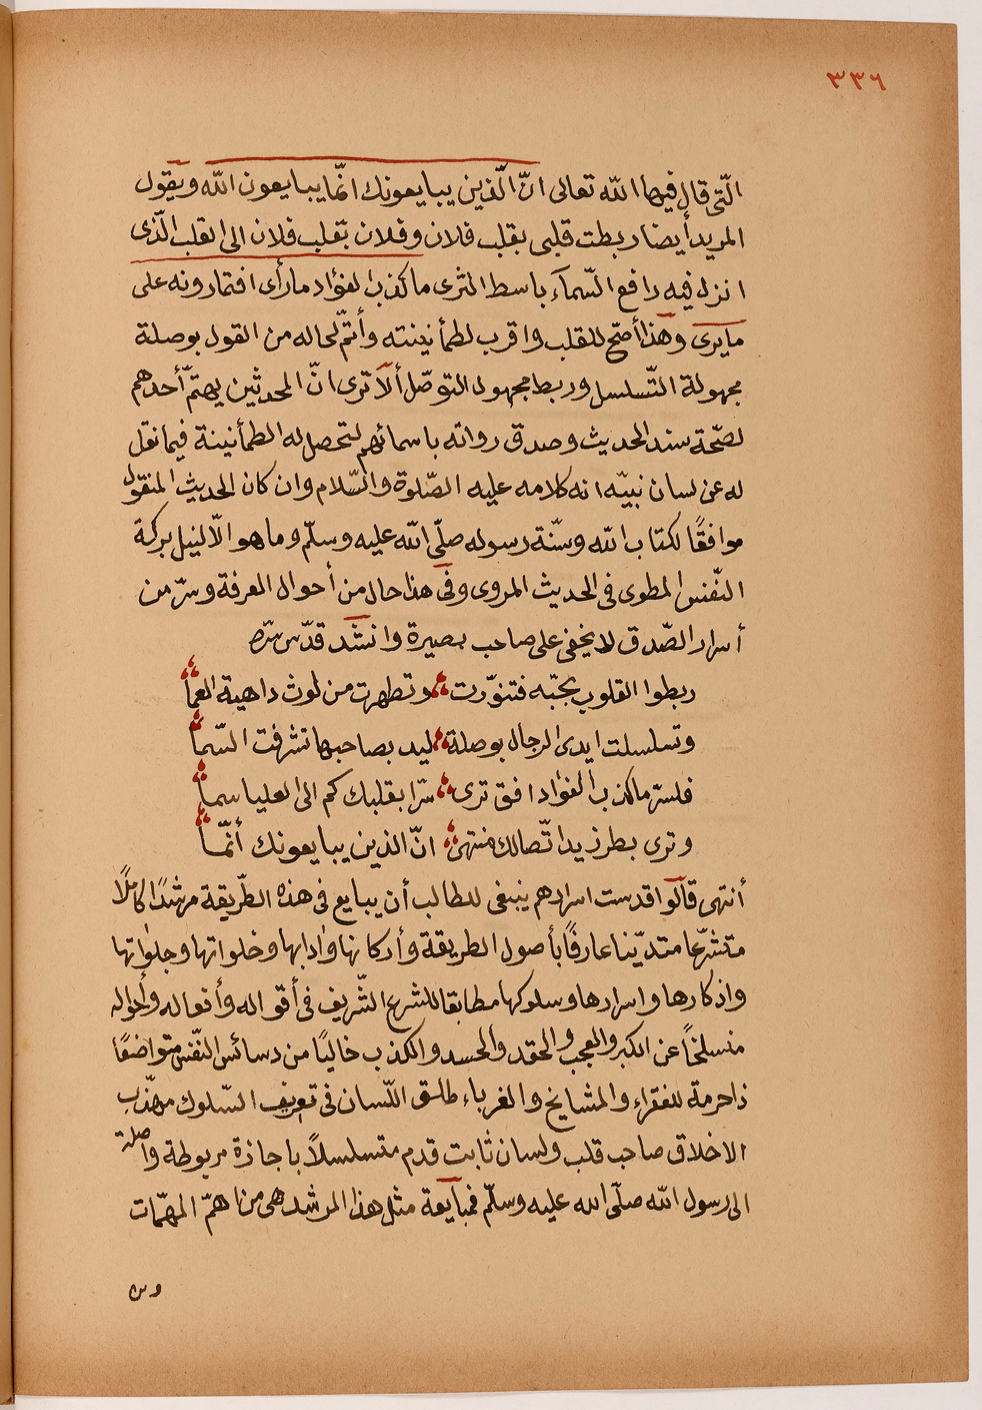 ٣٣٦
الّتى قال فيها الله تعالى انّ الّذين يبايعونك انّما يبايعون الله ويقول
المريد أيضا ربطت قلبى بقلب فلان وفلان بقلب فلان الى القلب الّذى
انزل فيه رافع السّمآء باسط الثرى ما كذب الفؤاد ما رأى افتمارونه على
ما يرى وهذا أصحّ للقلب واقرب لطمأنينته وأتمّ لحاله من القول بوصلة
مجهولة التّسلسل وربط مجهول التوصّل ألا ترى انّ المحدثين يهتمّ أحدهم
لصّحة سند الحديث وصدق رواته باسمائهم لتحصل له الطمأنينة فيما نقل
له عن لسان نبيّه انه كلامه عليه الصّلوة والسّلام وان كان الحديث المنقول
موافقًا لكتاب الله وسنّة رسوله صلّى الله عليه وسلّم وما هو الّا لنيل بركة
النّفس المطوى فى الحديث المروى وفى هذا حال من أحوال المعرفة وسرّ من
أسرار الصّدق لا يخفى على صاحب بصيرة وانشد قدّس سرّه
ربطوا القلوب بحبّه فتنوّرت وتطهرت من لوث داهية العمأ
وتسلسلت ايدى الرجال بوصلة ليد بصاحبها تشرفت السّمأ
فلسرّ ما كذب الفؤاد افق ترى سرّا بقلبك كم الى العليا سما
وترى بطرز يد اتّصالك منتهى انّ الذين يبايعونك أنّما
أنتهى قالوا قدست اسرارهم ينبغى للطالب أن يبايع فى هذه الطّريقة مرشدًا كاملًا
متشرّعا متديّنا عارفًا بأصول الطريقة وأركانها وادابها وخلواتها وجلواتها
واذكارها واسرارها وسلوكها مطابقا للشرع الشّريف فى أقواله وأفعاله وأحواله
منسلخًا عن الكبر والعجب والحقد والحسد والكذب خاليًا من دسائس النّفس متواضعًا
ذا حرمة للفقراء والمشايخ والغرباء طلق اللّسان فى تعريف السّلوك مهذّب
الاخلاق صاحب قلب ولسان ثابت قدم متسلسلاً باجازة مربوطة واصلة
الى رسول الله صلّى الله عليه وسلّم فمبايعة مثل هذا المرشد هى من اهمّ المهمّات